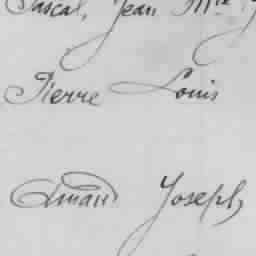 Pascal, Jean Mie
Pierre Louis
Aman Joseph,